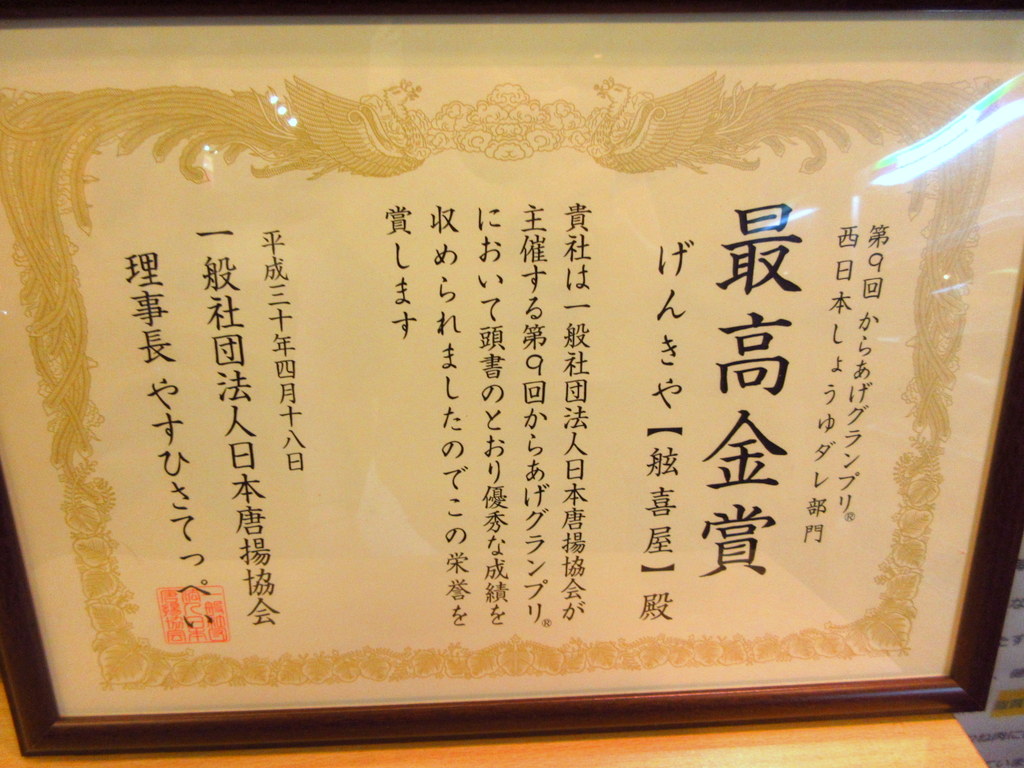 第9回からあげグランプリ®
西日本しょうゆダレ部門
最高金賞
げんきや【舷喜屋】殿
貴社は一般社団法人日本唐揚協会が
主催する第9回からあげグランプリ®
において頭書のとおり優秀な成績を
収められましたのでこの栄誉を
賞します
平成三十年四月十八日
一般社団法人日本唐揚協会
理事長 やすひさてっぺい